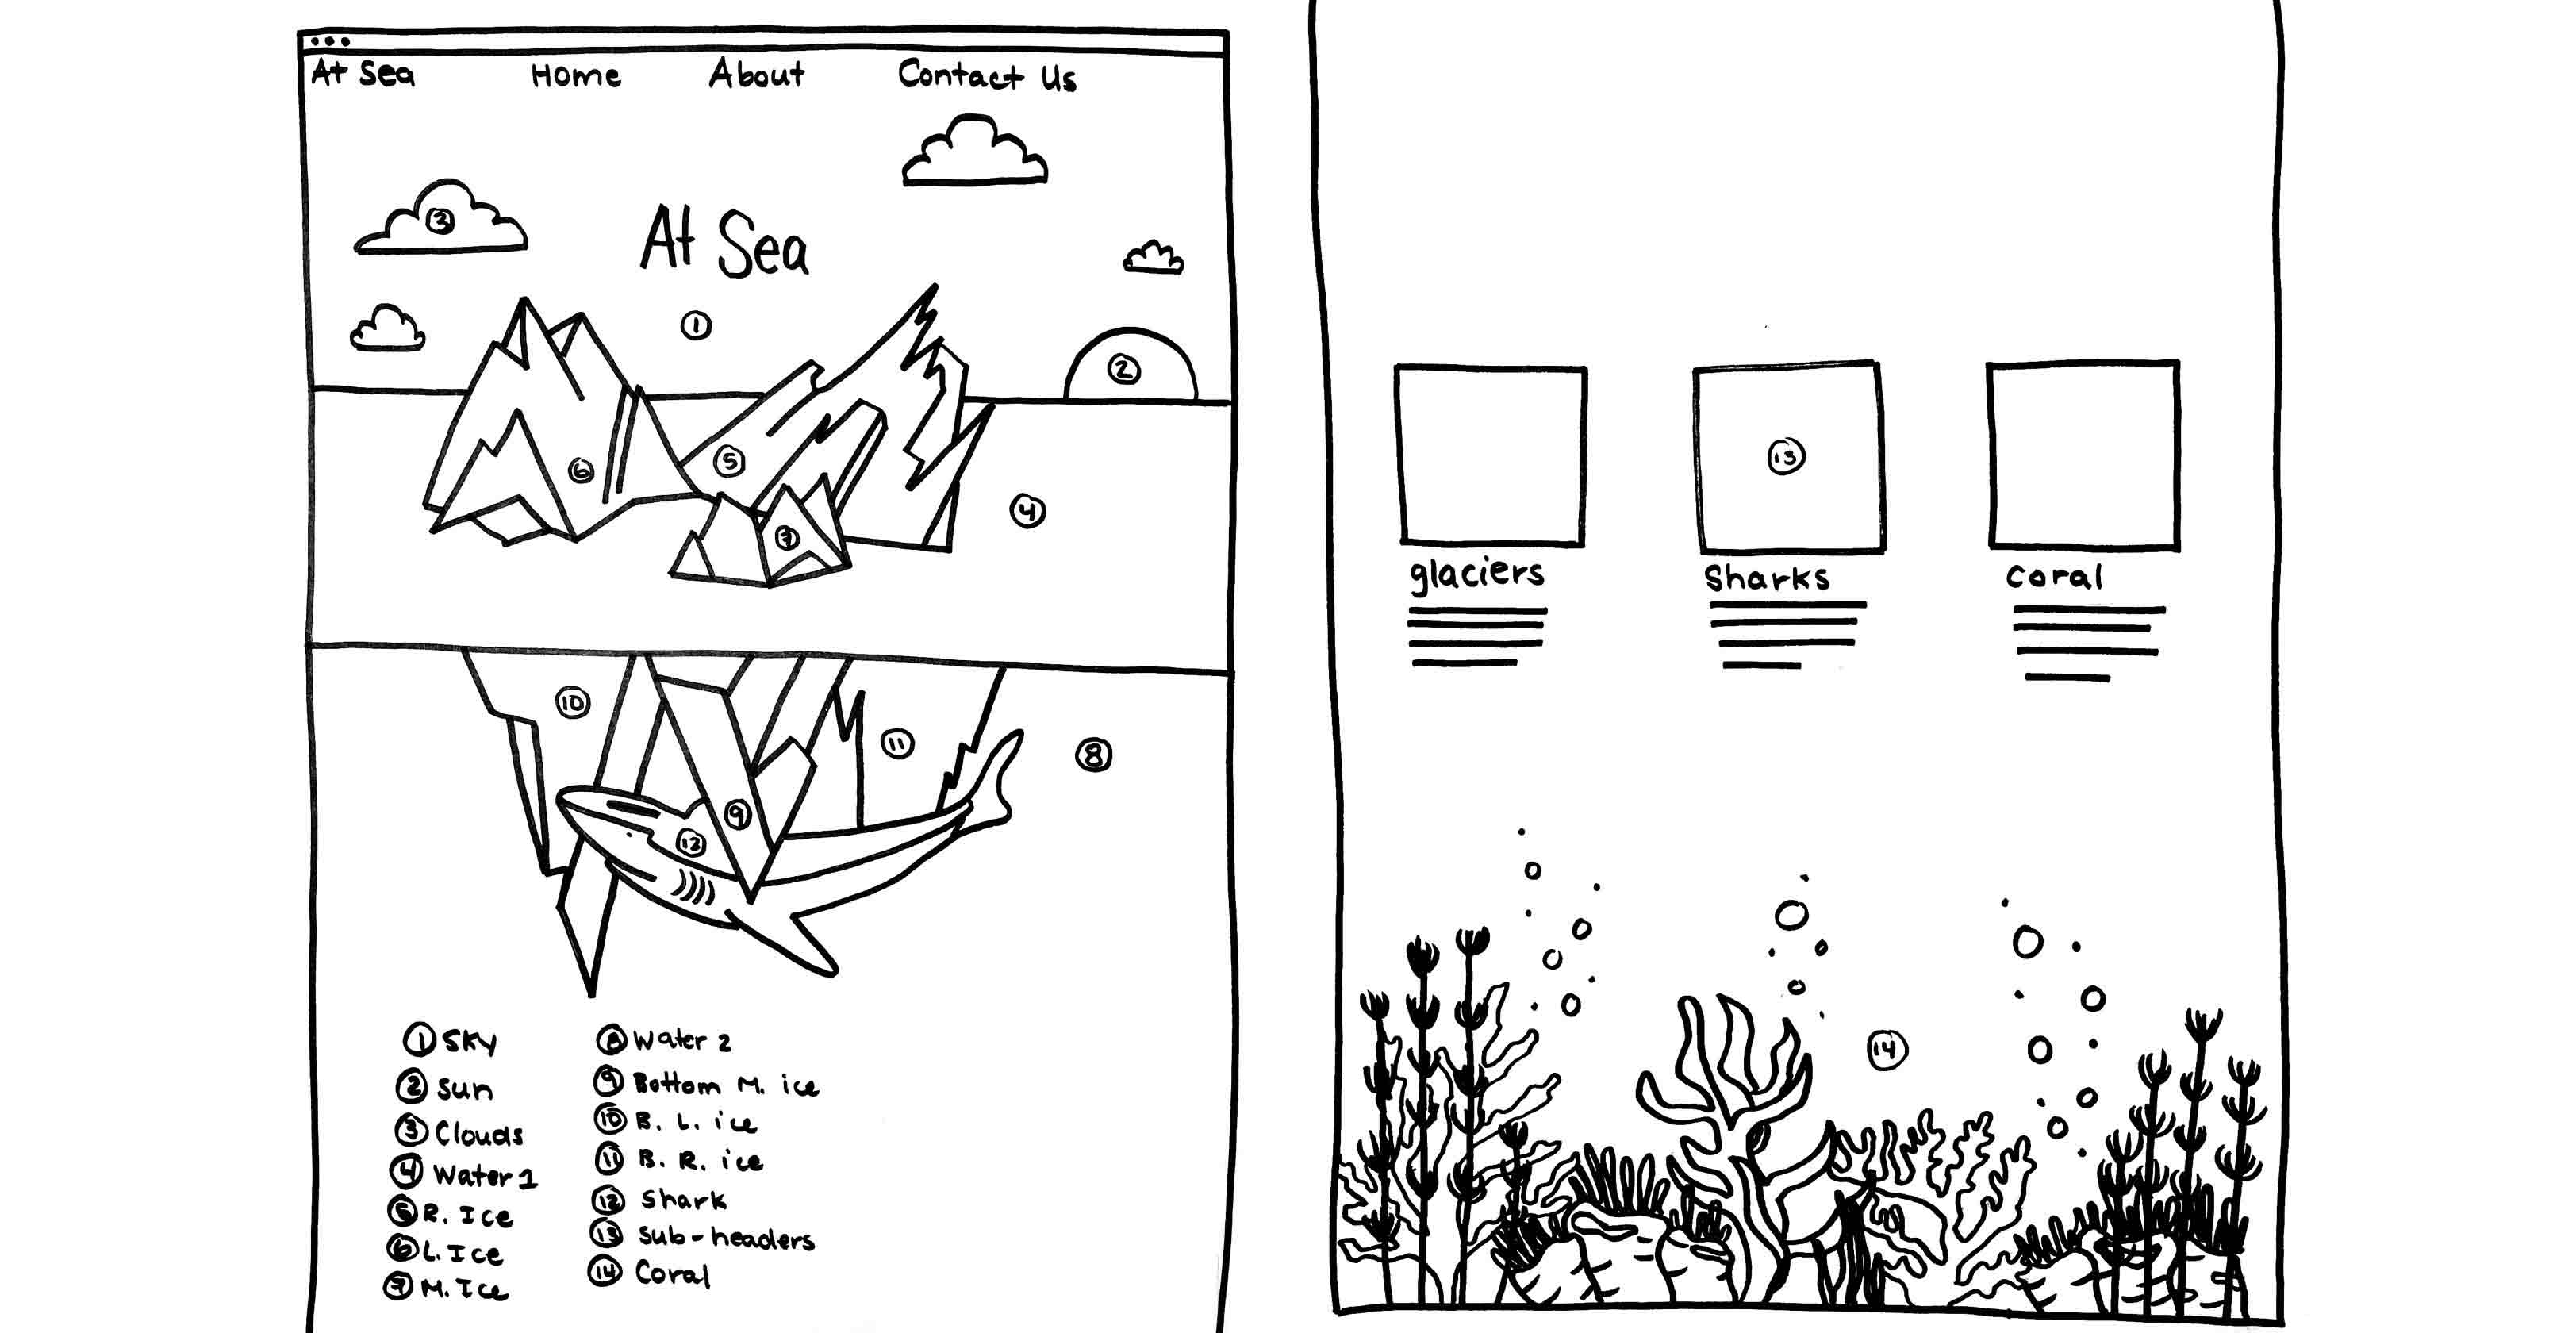 At Sea Home About Contact Us
3
At Sea
1
2
6
5
4
7
10
11
8
9
12
① Sky
② Sun
③ Clouds
④ Water 1
⑤ R. Ice
⑥ L. Ice
⑦ M. Ice
⑧ Water 2
⑨ Bottom M. ice
⑩ B. L. ice
⑪ B. R. ice
⑫ Shark
⑬ Sub-headers
⑭ Coral
13
glaciers
Sharks
coral
14